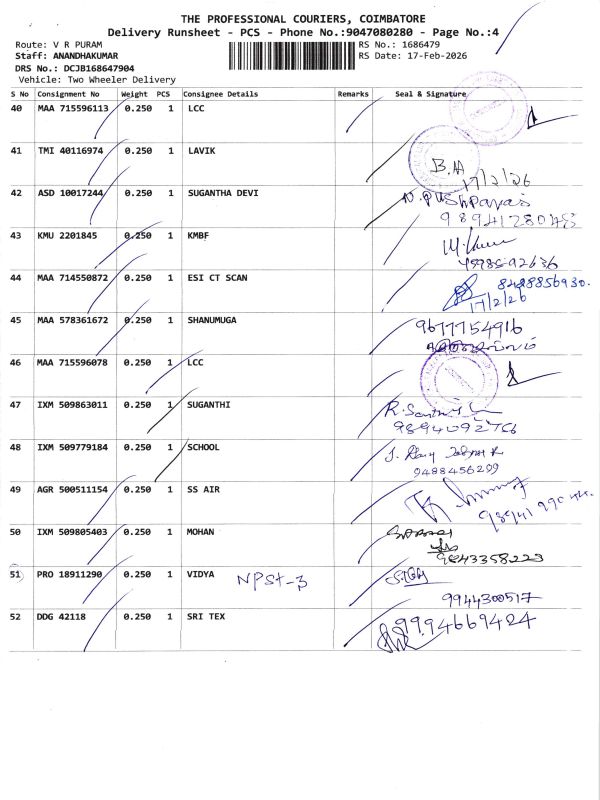 THE PROFESSIONAL COURIERS, COIMBATORE
Delivery Runsheet - PCS - Phone No.:9047080280 - Page No.:4
Route: V R PURAM RS No.: 1686479
Staff: ANANDHAKUMAR RS Date: 17-Feb-2026
DRS No.: DCJB168647904
Vehicle: Two Wheeler Delivery
S No Consignment No Weight PCS Consignee Details Remarks Seal & Signature
40 MAA 715596113 0.250 1 LCC
41 TMI 40116974 0.250 1 LAVIK
B.A
17/2/26
42 ASD 10017244 0.250 1 SUGANTHA DEVI
N. Pushpavas
9894128048
43 KMU 2201845 0.250 1 KMBF
44 MAA 714550872 0.250 1 ESI CT SCAN
8488856930.
17/2/26
45 MAA 578361672 0.250 1 SHANUMUGA
9677754916
46 MAA 715596078 0.250 1 LCC
47 IXM 509863011 0.250 1 SUGANTHI
9894092766
48 IXM 509779184 0.250 1 SCHOOL
9488456299
49 AGR 500511154 0.250 1 SS AIR
50 IXM 509805403 0.250 1 MOHAN
9843358223
51 PRO 18911290 0.250 1 VIDYA NPST-3
9944300517
52 DDG 42118 0.250 1 SRI TEX
9994669424